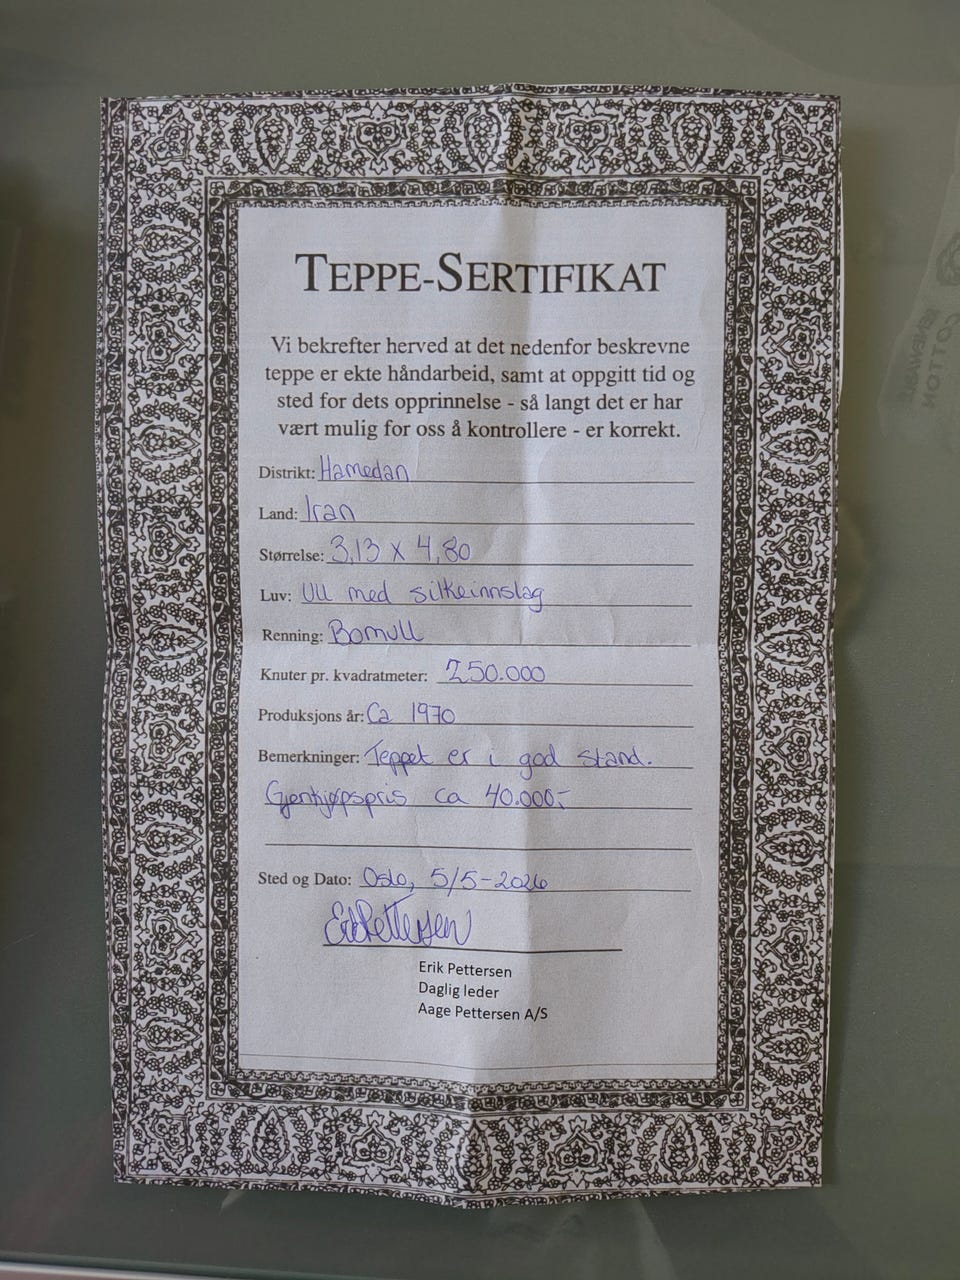 TEPPE-SERTIFIKAT
Vi bekrefter herved at det nedenfor beskrevne
teppe er ekte håndarbeid, samt at oppgitt tid og
sted for dets opprinnelse - så langt det er har
vært mulig for oss å kontrollere - er korrekt.
Distrikt: Hamedan
Land: Iran
Størrelse: 3,13 x 4,80
Luv: Ull med silkeinnslag
Renning: Bomull
Knuter pr. kvadratmeter: 250.000
Produksjons år: Ca 1970
Bemerkninger: Teppet er i god stand.
Gjenkjøpspris ca 40.000,-
Sted og Dato: Oslo, 5/5-2026
Erik Pettersen
Daglig leder
Aage Pettersen A/S
COTTON